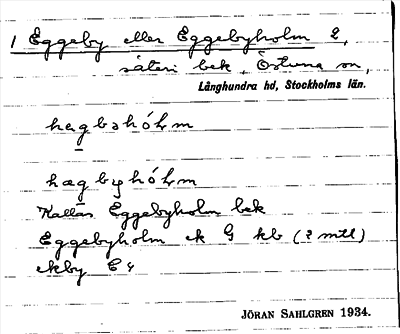 1 Eggeby eller Eggebyholm 2,
säteri bek, Östuna sn,
Långhundra hd, Stockholms län.
hegbəhólm
hægbyhólm
Kallas Eggebyholm bek
Eggebyholm ek G kb (2 mtl)
ekby E4
JÖRAN SAHLGREN 1934.